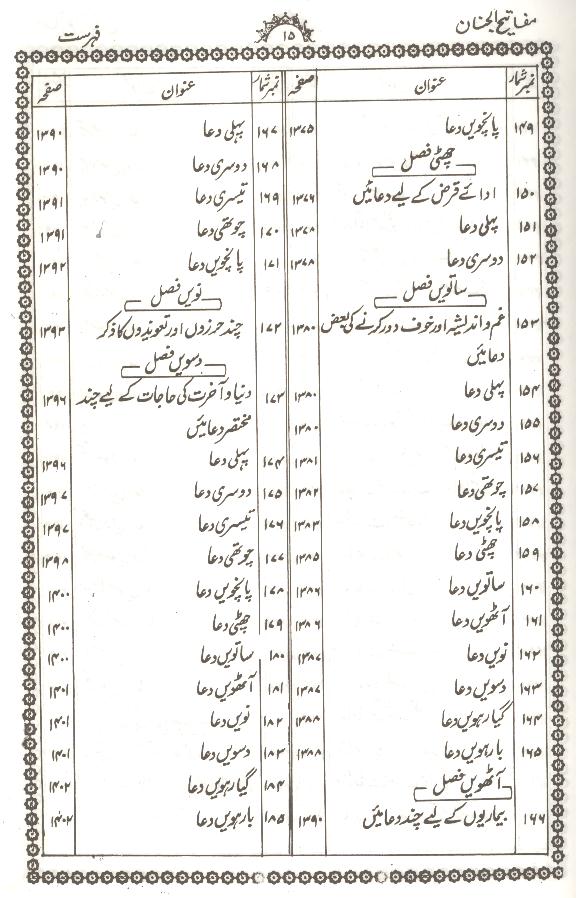 مفاتیح الجنان
۱۵
فہرست
نمبر شمار عنوان صفحہ
۱۴۹ پانچویں دعا ۱۳۷۵
چھٹی فصل
۱۵۰ ادائے قرض کے لیے دعائیں ۱۳۷۶
۱۵۱ پہلی دعا ۱۳۷۸
۱۵۲ دوسری دعا ۱۳۷۸
ساتویں فصل
۱۵۳ غم و اندیشہ اور خوف دور کرنے کی بعض ۱۳۸۰
دعائیں
۱۵۴ پہلی دعا ۱۳۸۰
۱۵۵ دوسری دعا ۱۳۸۰
۱۵۶ تیسری دعا ۱۳۸۱
۱۵۷ چوتھی دعا ۱۳۸۲
۱۵۸ پانچویں دعا ۱۳۸۳
۱۵۹ چھٹی دعا ۱۳۸۵
۱۶۰ ساتویں دعا ۱۳۸۶
۱۶۱ آٹھویں دعا ۱۳۸۶
۱۶۲ نویں دعا ۱۳۸۷
۱۶۳ دسویں دعا ۱۳۸۷
۱۶۴ گیارہویں دعا ۱۳۸۸
۱۶۵ بارہویں دعا ۱۳۸۸
آٹھویں فصل
۱۶۶ بیماریوں کے لیے چند دعائیں ۱۳۹۰
نمبر شمار عنوان صفحہ
۱۶۷ پہلی دعا ۱۳۹۰
۱۶۸ دوسری دعا ۱۳۹۰
۱۶۹ تیسری دعا ۱۳۹۱
۱۷۰ چوتھی دعا ۱۳۹۱
۱۷۱ پانچویں دعا ۱۳۹۲
نویں فصل
۱۷۲ چند حرزوں اور تعویذوں کا ذکر ۱۳۹۳
دسویں فصل
۱۷۳ دنیا و آخرت کی حاجات کے لیے چند ۱۳۹۶
مختصر دعائیں
۱۷۴ پہلی دعا ۱۳۹۶
۱۷۵ دوسری دعا ۱۳۹۷
۱۷۶ تیسری دعا ۱۳۹۷
۱۷۷ چوتھی دعا ۱۳۹۸
۱۷۸ پانچویں دعا ۱۴۰۰
۱۷۹ چھٹی دعا ۱۴۰۰
۱۸۰ ساتویں دعا ۱۴۰۰
۱۸۱ آٹھویں دعا ۱۴۰۱
۱۸۲ نویں دعا ۱۴۰۱
۱۸۳ دسویں دعا ۱۴۰۱
۱۸۴ گیارہویں دعا ۱۴۰۲
۱۸۵ بارہویں دعا ۱۴۰۲